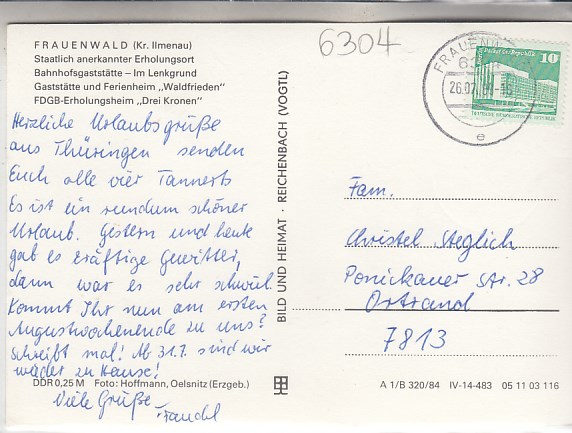 FRAUENWALD (Kr. Ilmenau)
Staatlich anerkannter Erholungsort
Bahnhofsgaststätte – Im Lenkgrund
Gaststätte und Ferienheim „Waldfrieden"
FDGB-Erholungsheim „Drei Kronen"
Herzliche Urlaubsgrüße
aus Thüringen senden
Euch alle vier Tannerts
Es ist ein rundum schöner
Urlaub. Gestern und heute
gab es kräftige Gewitter,
dann war es sehr schwül.
Kommt Ihr nun am ersten
Augustwochenende zu uns?
Schreibt mal! Ab 31.7. sind wir
wieder zu Hause!
Viele Grüße
DDR 0,25 M Foto: Hoffmann, Oelsnitz (Erzgeb.)
BILD UND HEIMAT · REICHENBACH (VOGTL)
6304
FRAUENW
26.07.
e
10
Palast der Republik
DEUTSCHE DEMOKRATISCHE REPUBLIK
Fam.
Christel Steglich
Ponickauer Str. 28
Ortrand
7813
A 1/B 320/84 IV-14-483 05 11 03 116